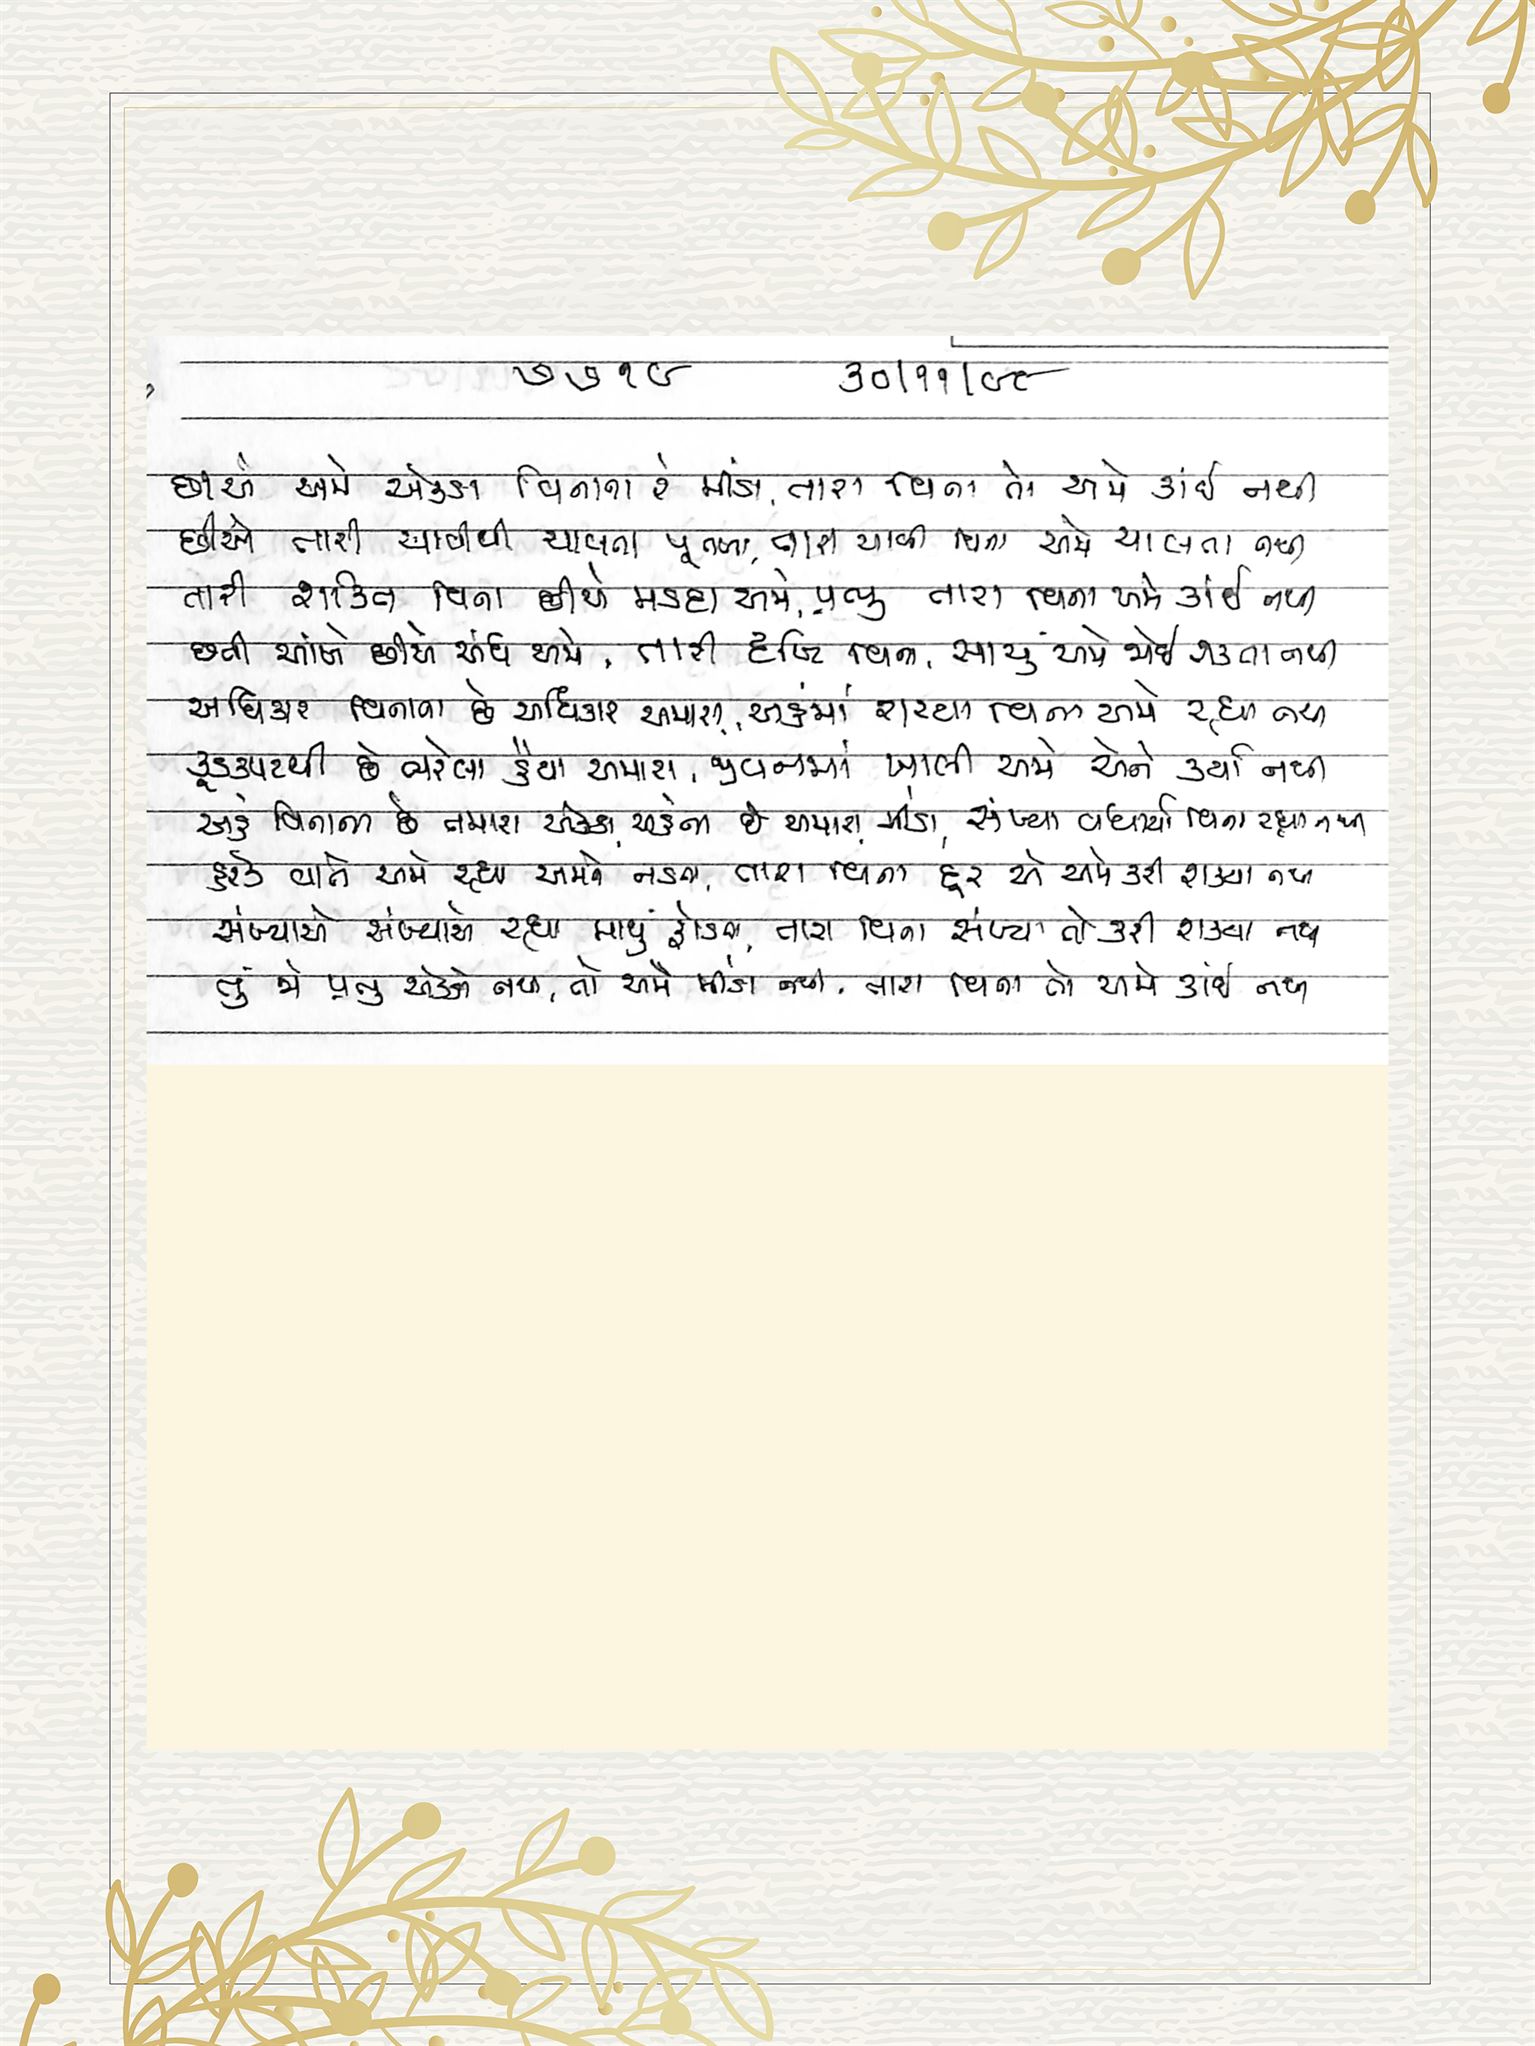 ૭૭૧૯ ૩૦/૧૧/૯૮
છીએ અમે એકડા વિનાના રે મીંડા, તારા વિના તો અમે કાંઈ નથી
છીએ તારી ચાવીથી ચાલતા પૂતળા, તારી ચાવી વિના અમે ચાલતા નથી
તારી શક્તિ વિના છીએ મડદા અમે, પ્રભુ તારા વિના અમે કાંઈ નથી
છતી આંખે છીએ અંધ અમે, તારી દૃષ્ટિ વિના, સાચું અમે જોઈ શકતા નથી
અધિકાર વિનાના છે અધિકાર અમારા, અહંમાં રાચ્યા વિના અમે રહ્યા નથી
કૂડકપટથી છે ભરેલા હૈયા અમારા, જીવનમાં ખાલી અમે એને કર્યા નથી
અહં વિનાના છે તમારા એકડા, અહંના છે અમારા મીંડા, સંખ્યા વધાર્યા વિના રહ્યા નથી
હરેક વાતે અમે રહ્યા અમને નડતા, તારા વિના દૂર એ અમે કરી શક્યા નથી
સંખ્યાએ સંખ્યાએ રહ્યા માથું ફોડતા, તારા વિના સંખ્યા તો કરી શક્યા નથી
તું જો પ્રભુ એકડો નથી, તો અમે મીંડા નથી, તારા વિના તો અમે કાંઈ નથી